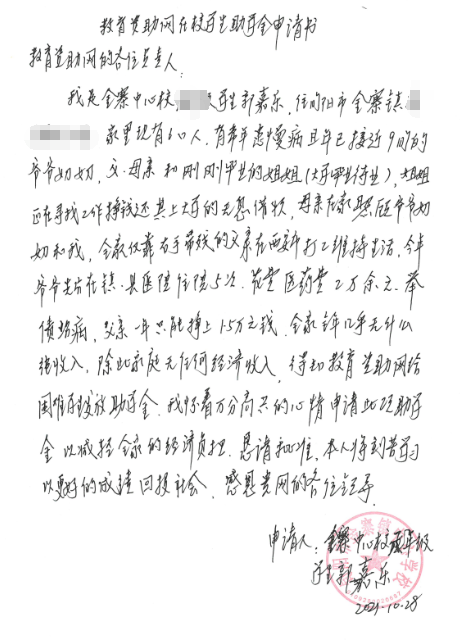 教育资助网在校学生助学金申请书
教育资助网的各位负责人:
我是金寨中心校 学生郭嘉乐,住旬阳市金寨镇
家里现有6口人,有常年患慢病且年已接近90的的
爷爷奶奶,父母亲和刚刚毕业的姐姐(大学毕业待业),姐姐
正在寻找工作挣钱还其上大学的无息贷款,母亲在家照顾爷爷奶
奶和我,全家仅靠右手带残的父亲在西安打工维持生活,今年
爷爷先后在镇、县医院住院5次,花费医药费2万余元,举
债治病,父亲一年只能挣上1.5万元钱,全家全年几乎无什么
纯收入,除此家庭无任何经济收入,得知教育资助网给
困难学生发放助学金,我怀着万分高兴的心情申请此项助学
金以减轻全家的经济负担,恳请批准,本人将刻苦学习
以更好的成绩回报社会,感恩贵网的各位领导。
申请人:金寨中心校 年级
学生郭嘉乐
2021.10.28